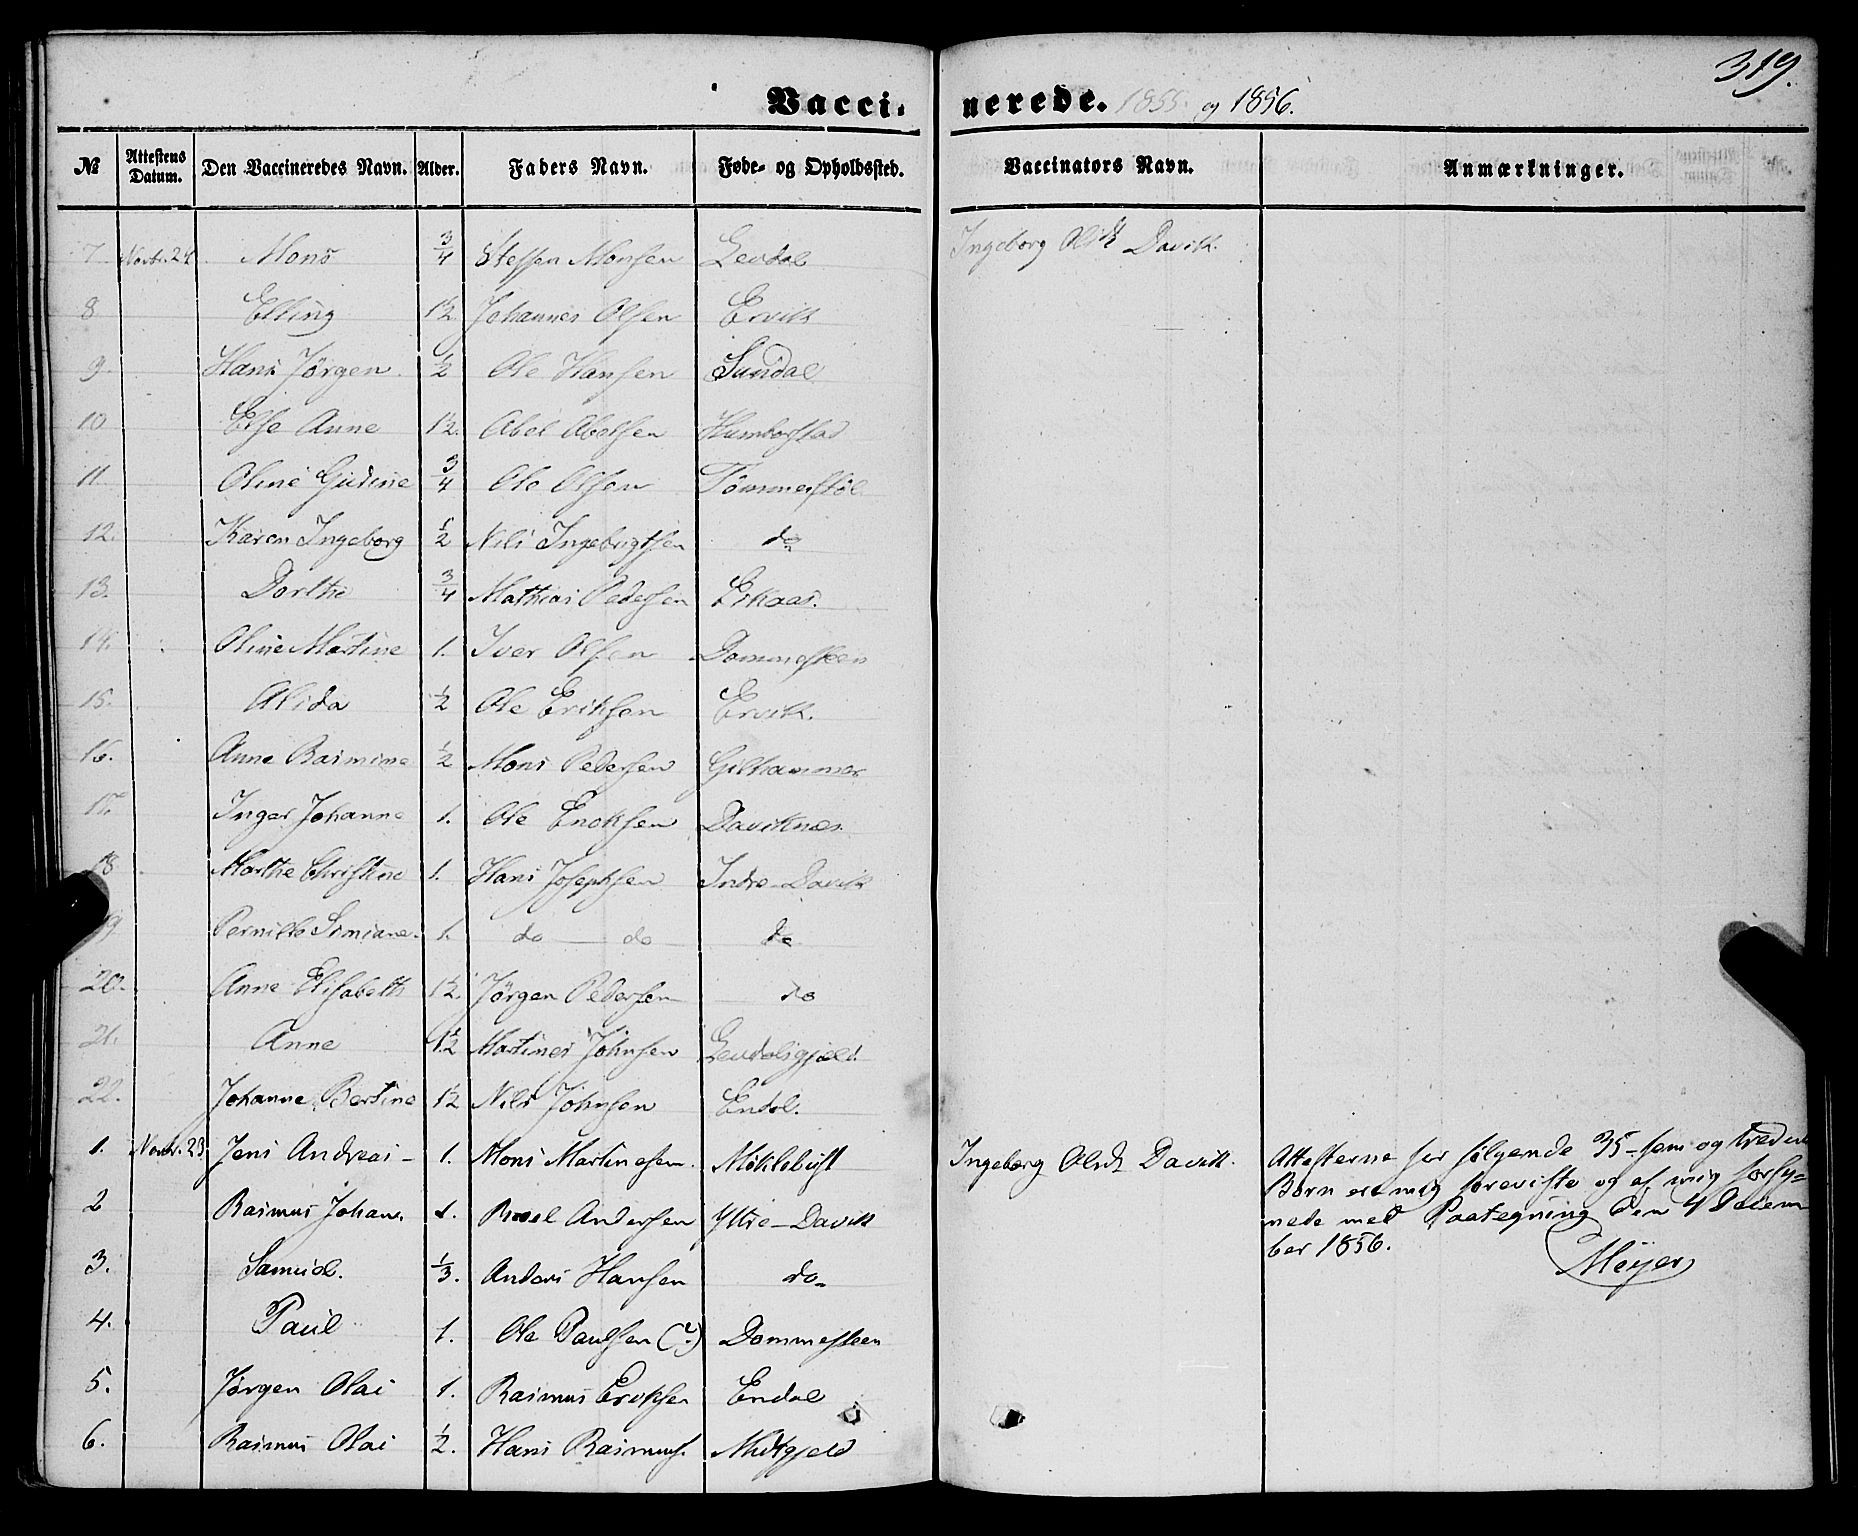 319.
Vaccinerede. 1855. og 1856.
№ | Attestens Datum. | Den Vaccineredes Navn. | Alder. | Faders Navn. | Føde- og Opholdssted. | Vaccinators Navn. | Anmærkninger.
7. | Novbr. 24. | Mons | 3/4 | Steffen Monsen | Levdal | Ingeborg Olsdt Davik.
8 | Elling | 1 1/2 | Johannes Olsen | Ervik
9. | Hans Jörgen. | 1/2 | Ole Hansen | Sundal
10 | Else Anne | 1 1/2. | Abel Abelsen | Humborstad
11. | Oline Gudine | 3/4 | Ole Olsen | Tömmerstöl
12. | Karen Ingeborg | 1/2 | Nils Ingebrigtsen | do
13. | Dorthe | 3/4 | Mathias Pedersen | Eikaas.
14. | Oline Martine | 1. | Iver Olsen | Dommesteen
15. | Alida | 1/2 | Ole Eriksen | Ervik.
16. | Anne Rasmine | 1/2 | Mons Pedersen | Gilhammer
17. | Inger Johanne | 1. | Ole Enoksen | Daviknæs.
18 | Marthe Christine | 1. | Hans Josephsen | Indre-Davik
19 | Pernille Simiane. | 1. | do — do | do
20. | Anne Elisabeth | 1 1/2. | Jörgen Pedersen | do
21. | Anne | 1 1/2 | Martines Johnsen | Levdalsgjeld.
22. | Johanne Bertine | 1 1/2 | Nils Johnsen | Endal.
1. | Novbr. 23. | Jens Andreas - | 1. | Mons Martinesen. | Møklebust | Ingeborg Olsdt Davik. | Attesterne for følgende 35-fem og tredive
Børn ere mig foreviste og af mig forsy=
nede med Paategning den 4 Decem-
ber 1856.
Meyer
2 | Rasmus Johan. | 1. | Andersen | Ytre-Davik
3. | Samuel. | 1/3. | Anders Hansen | do-
4. | Paul | 1. | Ole Paulsen (?) | Dommesteen
5. | Jørgen Olai | 1. | Rasmus Eroksen | Endal
6. | Rasmus Olai | 1/2. | Hans Rasmuss. | Midtgjeld